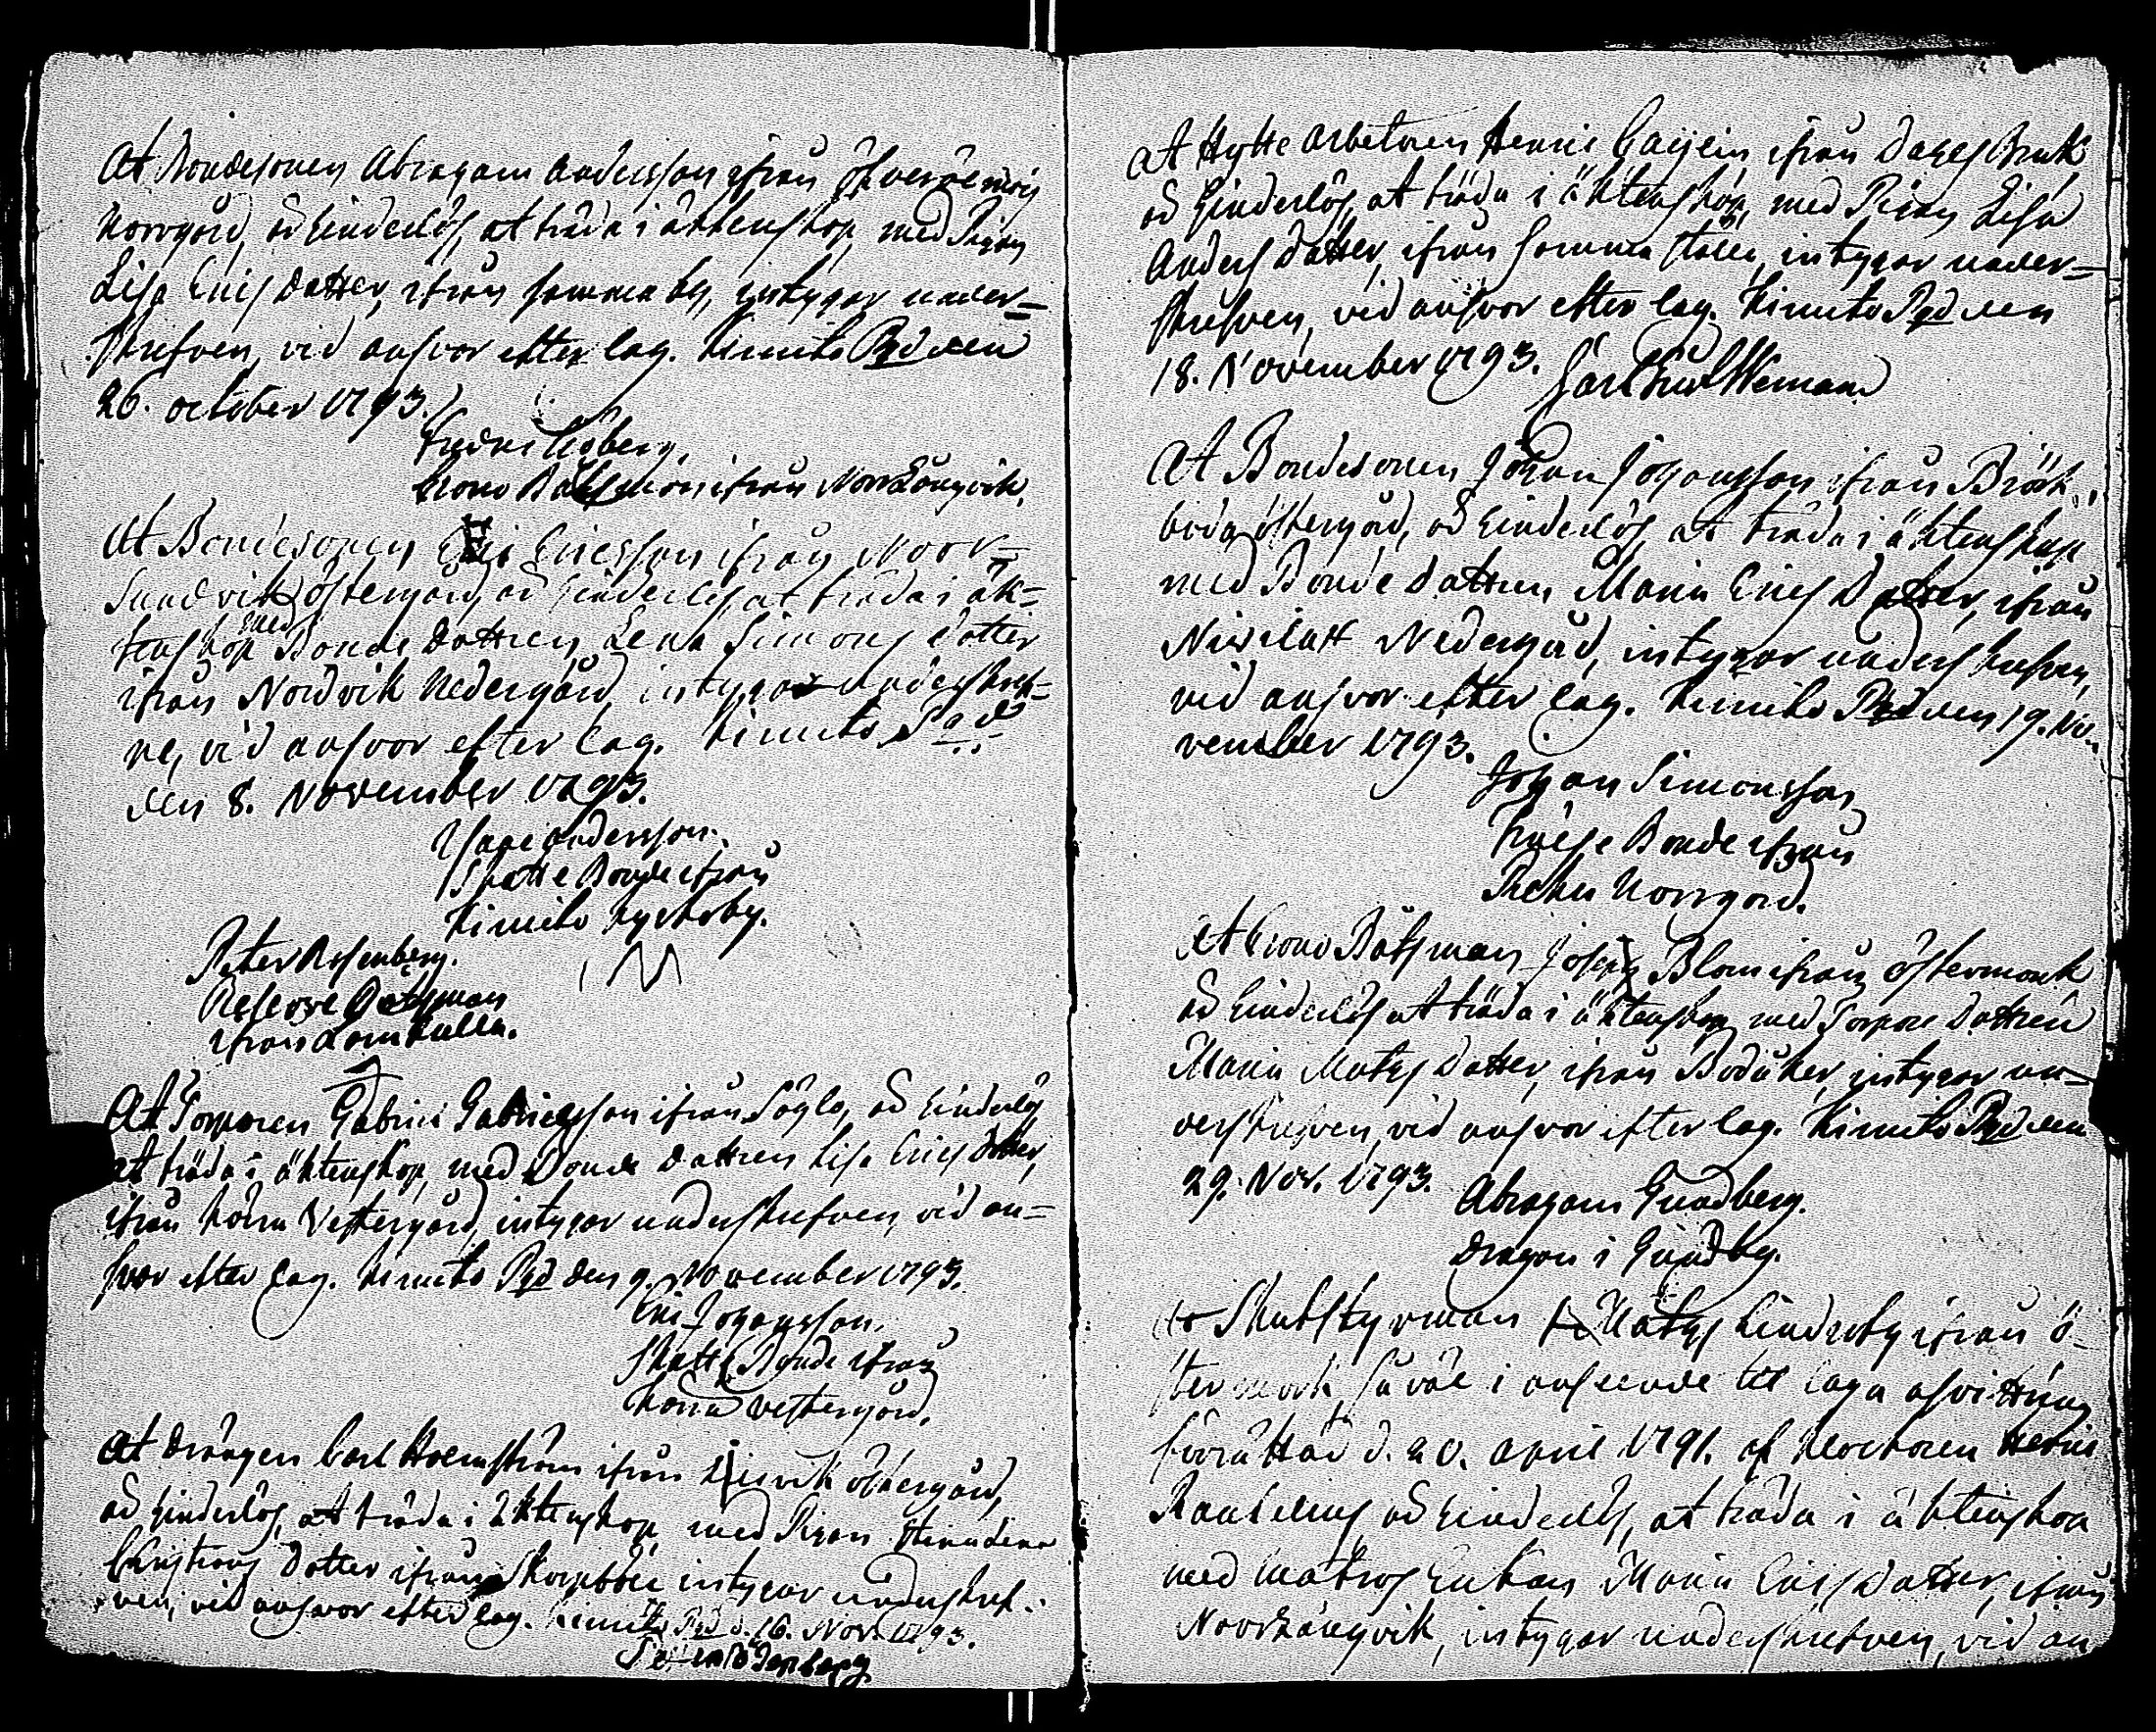 At Bondesonen Abraham Andersson ifrån
Norrgård, är hinderlös, at träda i äktenskap, med Pigan
Lisa Erics Dotter, ifrån samma by, intygar under=
skrefven, vid answar efter lag. Kimito Pgd den
26. october 1793.
Fredric
Crono Båtsman ifrån Norrlångvik.
At Bondesonen Eric Ericsson ifrån Norr=
Sundvik östergård, är hinderlös, at träda i äk=
tenskap med Bonde Dottren Lena Simons dotter
ifrån Nordvik Nedergård, intygar underskref=
ne, vid answar efter lag. Kimito Pgd
den 8. November 1793.
Isac Andersson.
Skatte Bonde ifrån
Kimito Kyrkoby.
Peter Rosenberg.
Reserve Båtsman
ifrån Lamkulla.
At Torparen Gabriel Gabrielsson ifrån Söglö, är hinderlös
at träda i äktenskap, med Bonde dottren Lisa Erics dotter,
ifrån Västergård, intygar underskrefven, vid an=
svar efter lag. Kimito Pgd den 9. November 1793.
Eric Johansson.
Skatte Bonde ifrån
västergård.
At drängen Carl Holmström ifrån östergård,
är hinderlös, at träda i äktenskap, med Pigan
Christians Dotter ifrån Skogsböle intygar underskref=
ven, vid answar efter lag. Kimito Pgd d. 16. Nov. 1793.
At Hytte arbetaren Henric ifrån Dahls Bruk
är hinderlös, at träda i äktenskap, med Pigan Lisa
Anders Dotter, ifrån samma ställe, intygar under=
skrefven, vid answar efter lag. Kimito Pgd den
18. November 1793. Carl Eric Wiman
At Bondesonen Johan Johansson ifrån Bräk
boda östergård, är hinderlös, at träda i äktenskap
med Bonde dottren Maria Erics Dotter, ifrån
Nivelax Nedergård, intygar underskrefven,
vid answar efter lag. Kimito Pgd den 19. No=
vember 1793.
Johan Simonsson
Frälse Bonde ifrån
Reku Norrgård.
At Crono Båtsman Joseph Blom ifrån östermark
är hinderlös at träda i äktenskap med Torpare Dottren
Maria Mats Dotter, ifrån Bodåker, intygar un=
derskrefven, vid answar efter lag. Kimito Pgd den
29. Nov. 1793. Abraham Gundberg.
Dragon i Gundby.
Skutstyrman Mats Lindroth ifrån ö=
stermark så väl i anseende til laga afvittring
förrättad d. 20. april 1791. af klockaren Henric
är hinderlös, at träda i äktenskap
med matros Enkan Maria Erics Dotter, ifrån
Norrlångvik, intygar underskrefven, vid an